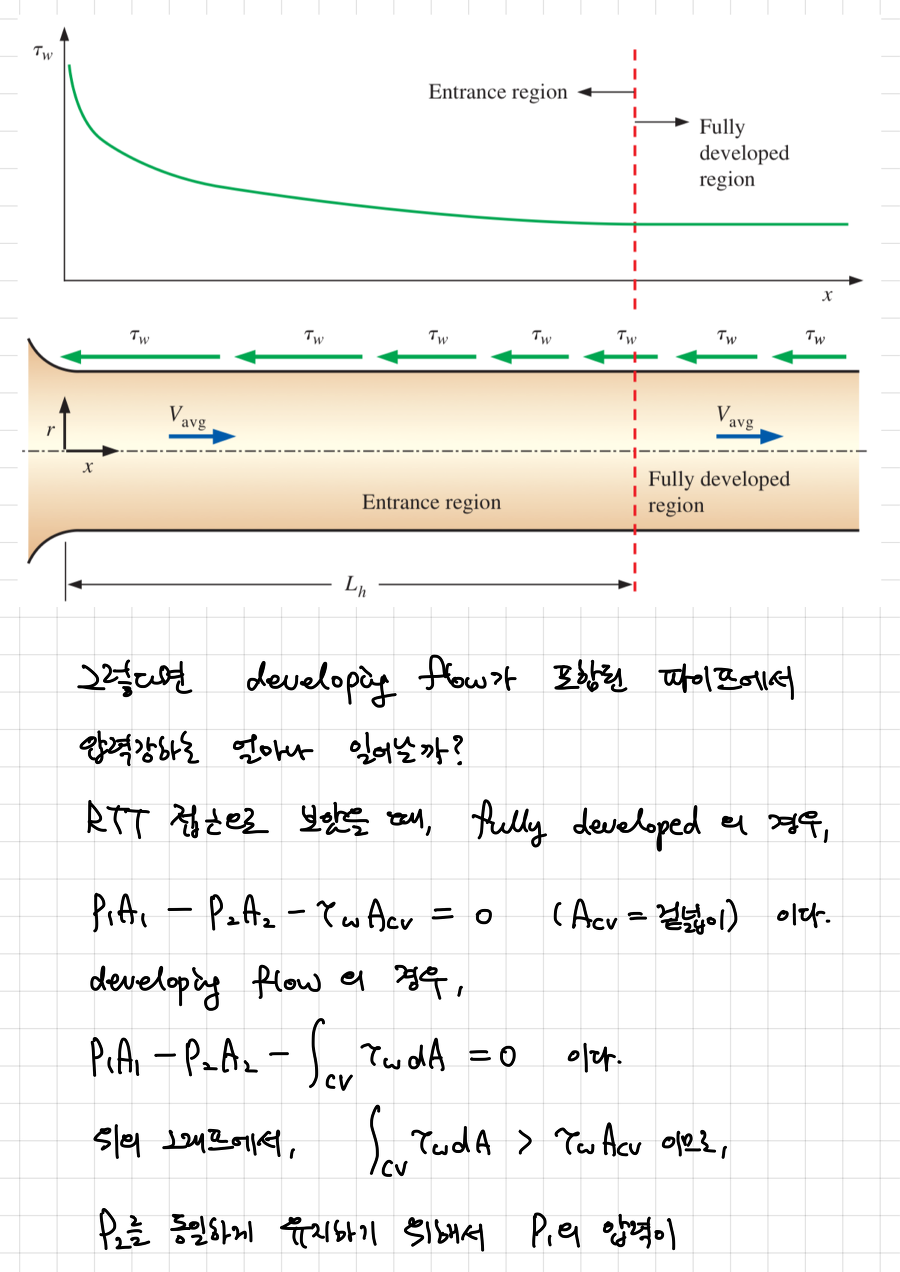 τw
Entrance region
Fully
developed
region
x
τw τw τw τw τw τw τw
Vavg
Vavg
r
x
Fully developed
region
Entrance region
Lh
그렇다면 developing flow가 포함된 파이프에서
압력강하는 얼마나 일어날까?
RTT 접근으로 보았을 때, fully developed 의 경우,
P₁A₁ - P₂A₂ - τw Acv = 0 (Acv = 겉넓이) 이다.
developing flow 의 경우,
P₁A₁ - P₂A₂ - ∫cv τw dA = 0 이다.
위의 그래프에서, ∫cv τw dA > τw Acv 이므로,
P₂를 동일하게 유지하기 위해서 P₁의 압력이